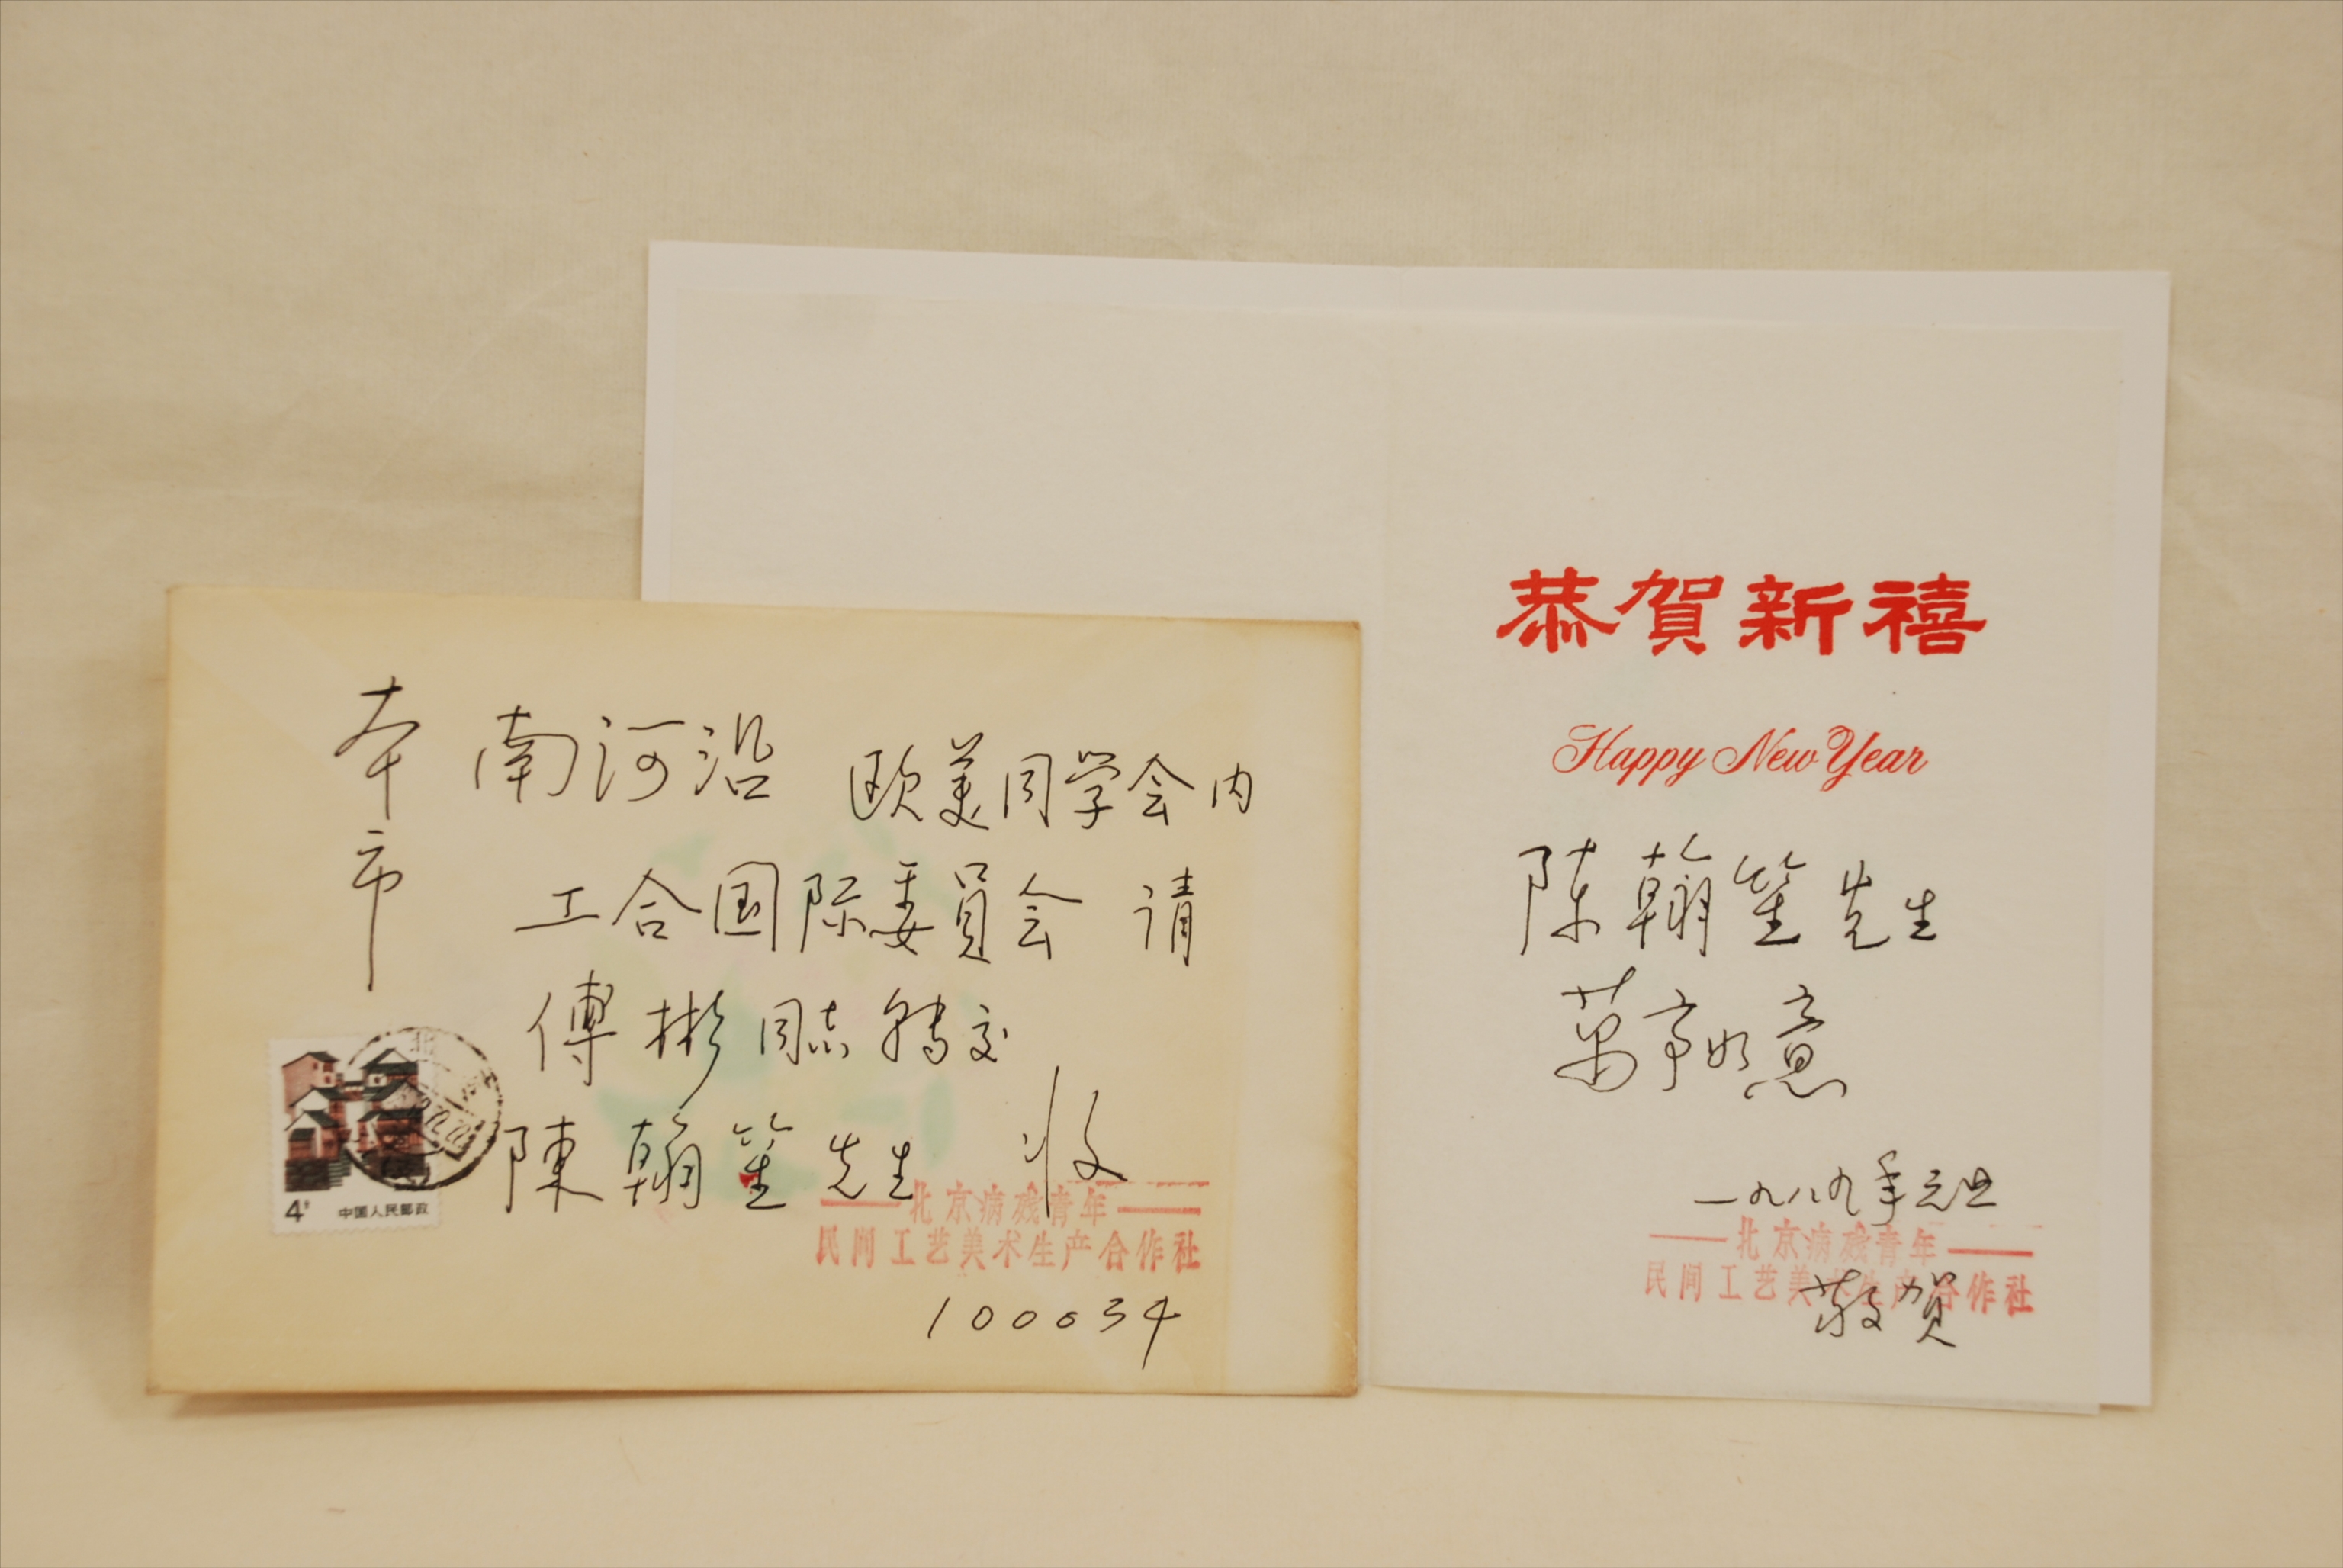 本市
南河沿 欧美同学会内
工合国际委員会 请
傅彬同志转交
陳翰笙先生 收
北京病残青年
民间工艺美术生产合作社
100034
4分 中国人民邮政
北
恭賀新禧
Happy New Year
陈翰笙先生
萬事如意
一九八九年元旦
北京病残青年
民间工艺美术生产合作社
敬贺